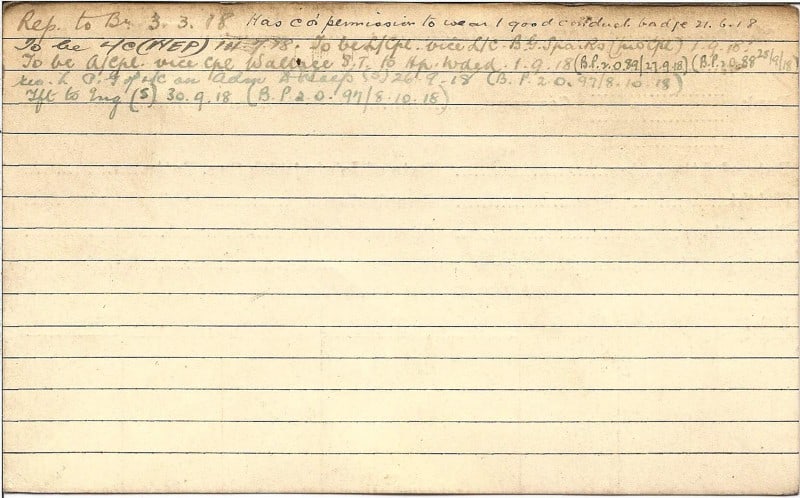 Rep. to Bn. 3. 3. 18 Has co's permission to wear 1 good conduct badge 21. 6. 18
To be L/C (WEP) 18. To be L/Cpl. vice L/C. B.G. Sparks (pro Cpl) 1. 9. 18
To be A/Cpl. vice Cpl Wallace S.T. to Hp. Wded. 1. 9. 18 (B.P. 2.0. 89/27.9.18) (B.P. 2.0. 88 28/9/18)
L/C on Adm 26. 9. 18 (B. P. 2. 0. 97/8. 10. 18)
Tft to Eng (S) 30. 9. 18 (B. P. 2. 0. 97/8. 10. 18)